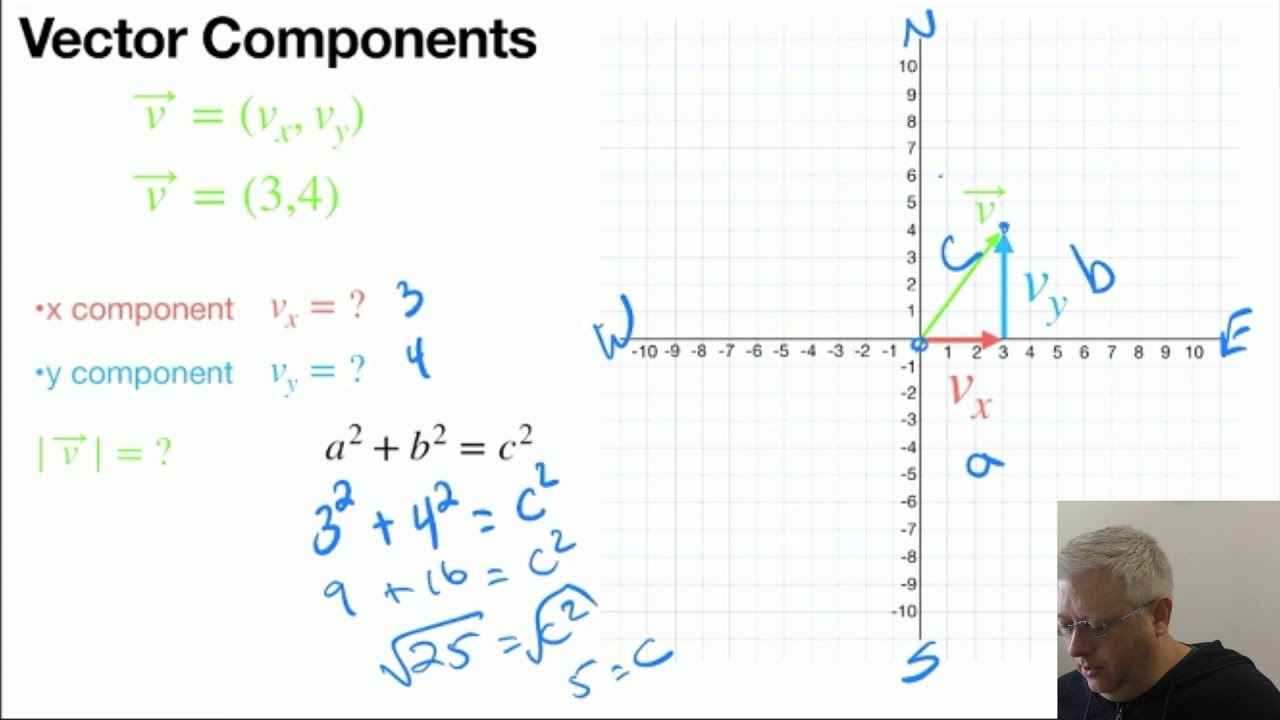 Vector Components
v⃗ = (vₓ, v_y)
v⃗ = (3,4)
•x component vₓ = ? 3
•y component v_y = ? 4
|v⃗| = ?
a² + b² = c²
3² + 4² = c²
9 + 16 = c²
√25 = √c²
5 = c
N
10
9
8
7
6
5
4
3
2
1
W
-10 -9 -8 -7 -6 -5 -4 -3 -2 -1 1 2 3 4 5 6 7 8 9 10
E
-1
-2
-3
-4
-5
-6
-7
-8
-9
-10
S
v⃗
c
v_y
b
vₓ
a